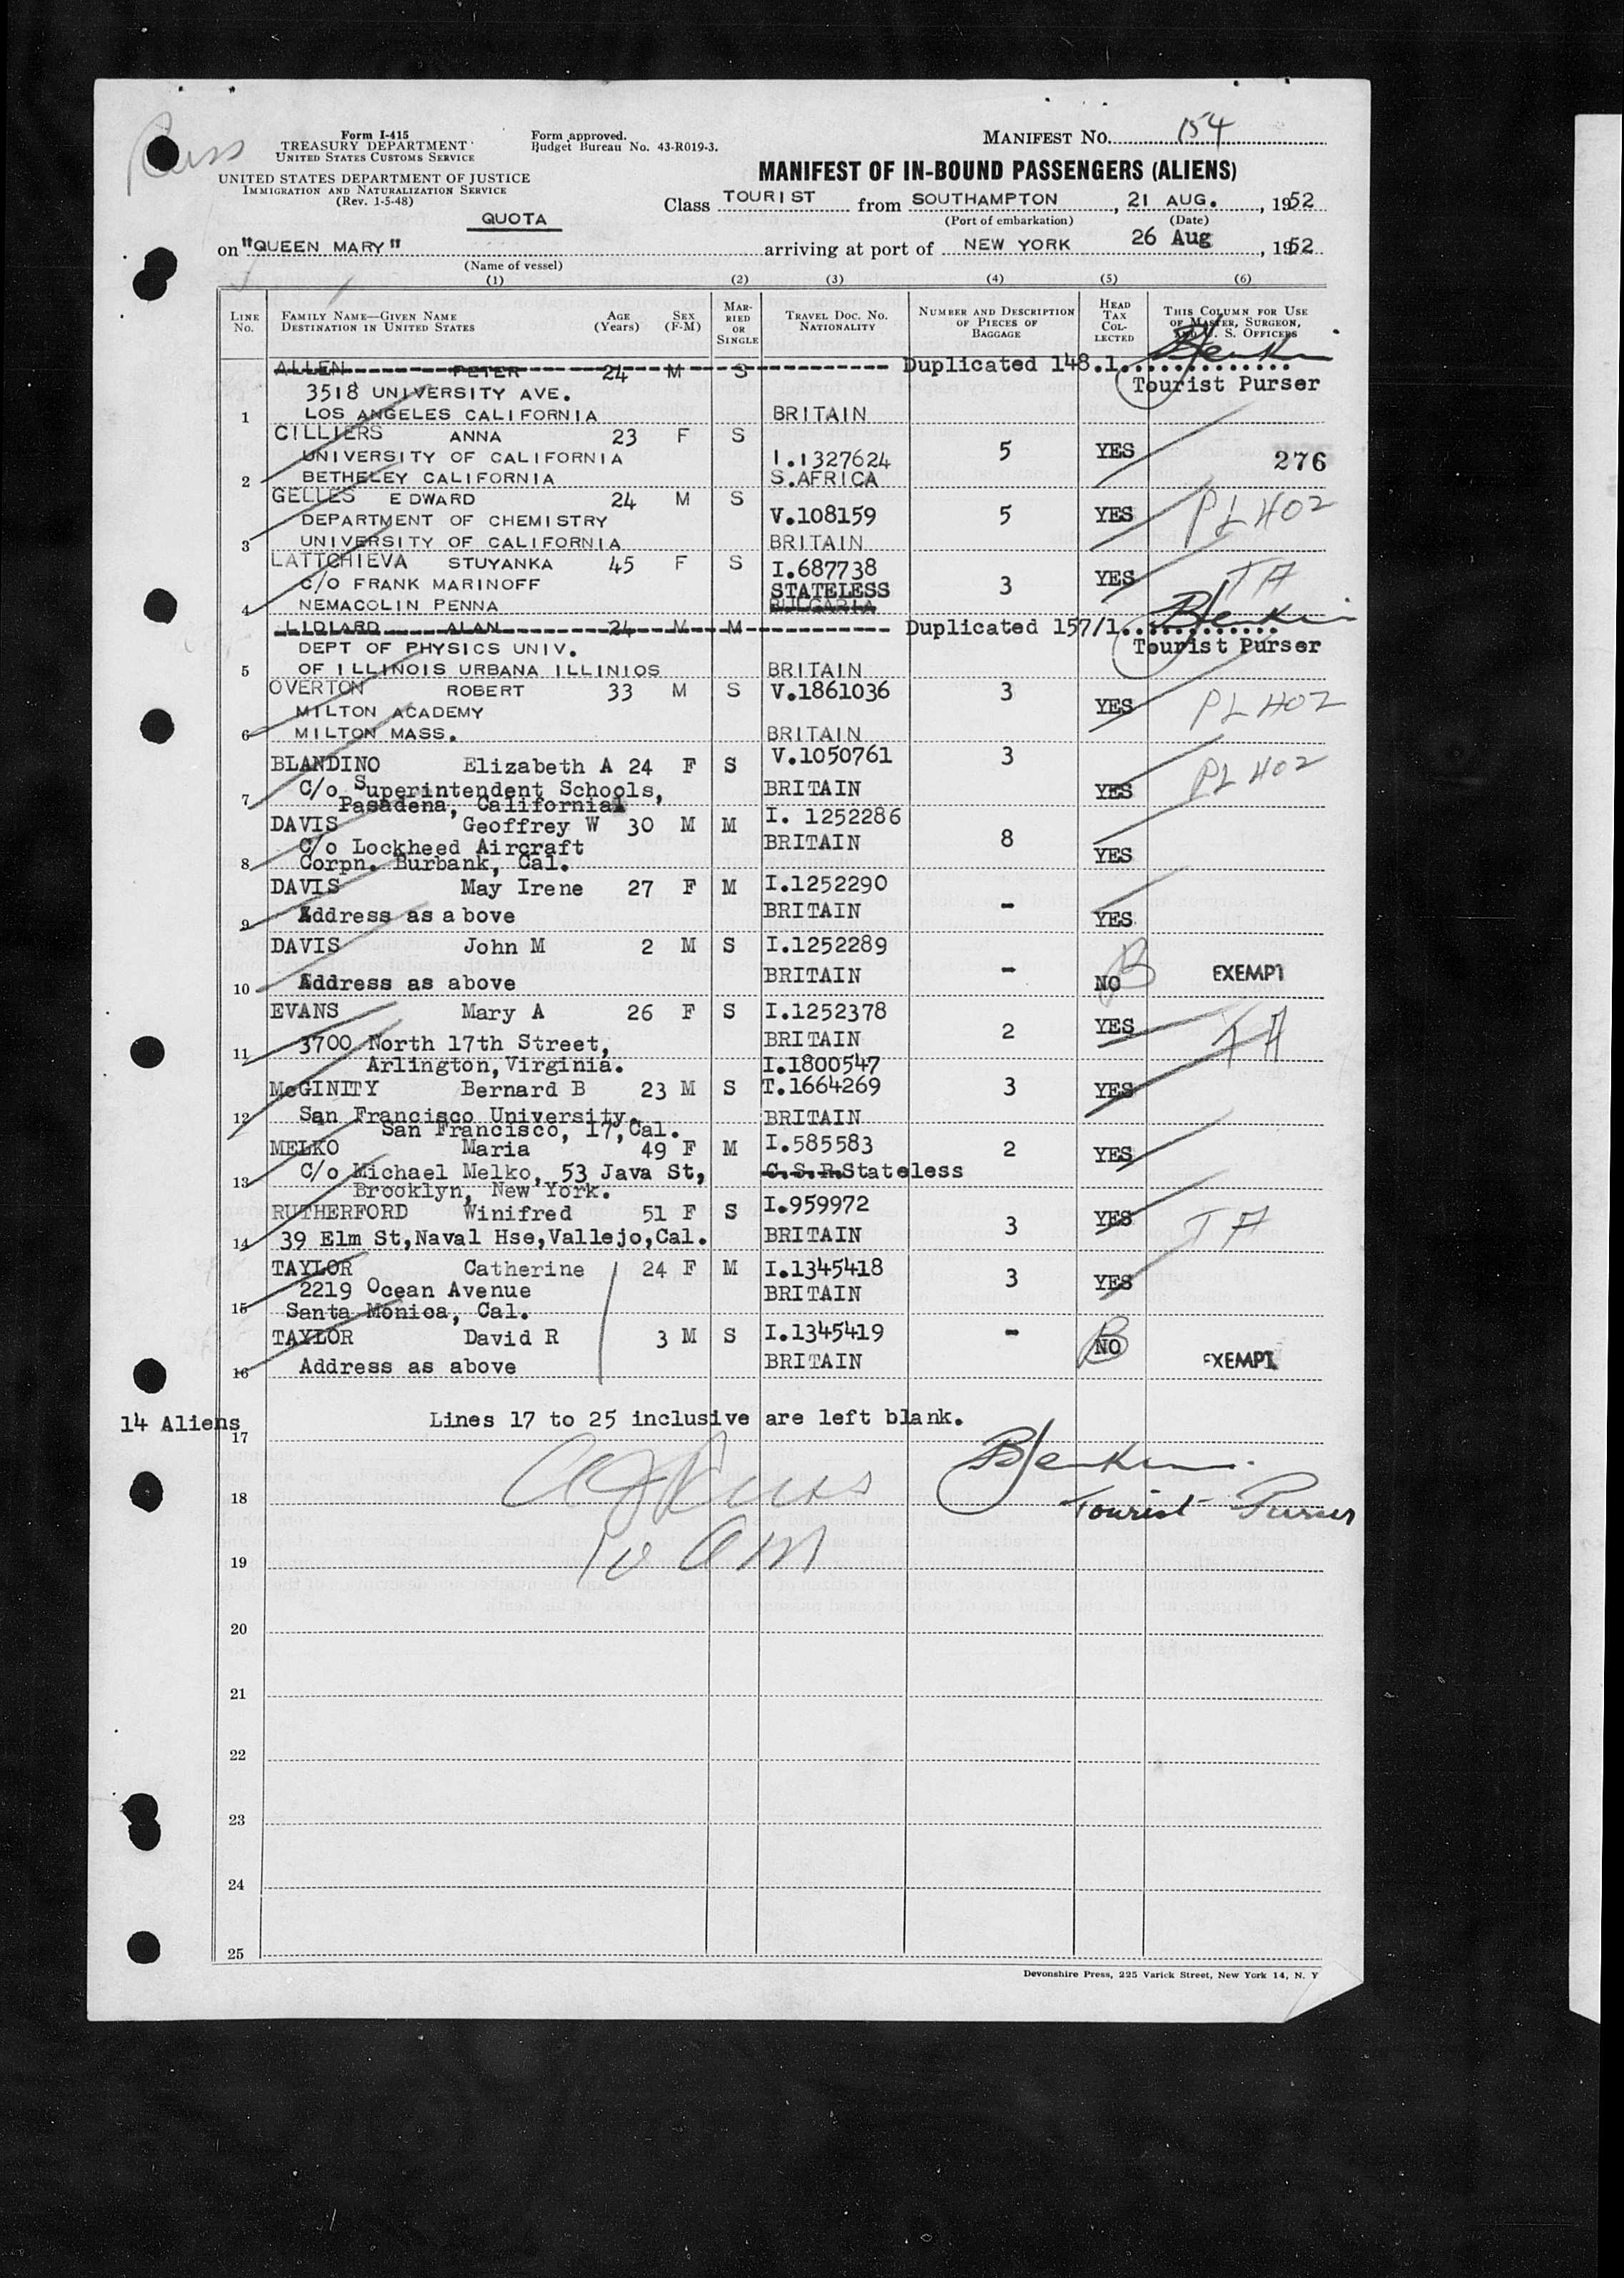 Russ
Form I-415
TREASURY DEPARTMENT
UNITED STATES CUSTOMS SERVICE
UNITED STATES DEPARTMENT OF JUSTICE
IMMIGRATION AND NATURALIZATION SERVICE
(Rev. 1-5-48)
Form approved.
Budget Bureau No. 43-R019-3.
MANIFEST NO. 154
MANIFEST OF IN-BOUND PASSENGERS (ALIENS)
Class TOURIST from SOUTHAMPTON, 21 AUG., 1952
(Port of embarkation) (Date)
QUOTA
on "QUEEN MARY" arriving at port of NEW YORK 26 Aug, 1952
(Name of vessel)
(1) (2) (3) (4) (5) (6)
LINE No. FAMILY NAME—GIVEN NAME DESTINATION IN UNITED STATES AGE (Years) SEX (F-M) MARRIED OR SINGLE TRAVEL DOC. NO. NATIONALITY NUMBER AND DESCRIPTION OF PIECES OF BAGGAGE HEAD TAX COLLECTED THIS COLUMN FOR USE OF MASTER, SURGEON, AND U. S. OFFICERS
ALLEN PETER 24 M S Duplicated 148.1
3518 UNIVERSITY AVE. Tourist Purser
1 LOS ANGELES CALIFORNIA BRITAIN
CILLIERS ANNA 23 F S 5 YES
UNIVERSITY OF CALIFORNIA I.1327624 276
2 BETHELEY CALIFORNIA S.AFRICA
GELLES EDWARD 24 M S 5 YES PL 402
DEPARTMENT OF CHEMISTRY V.108159
3 UNIVERSITY OF CALIFORNIA BRITAIN
LATTCHIEVA STUYANKA 45 F S I.687738 3 YES TA
C/O FRANK MARINOFF STATELESS
4 NEMACOLIN PENNA BULGARIA
LIDIARD ALAN 24 M M Duplicated 157/1
DEPT OF PHYSICS UNIV. Tourist Purser
5 OF ILLINOIS URBANA ILLINIOS BRITAIN
OVERTON ROBERT 33 M S V.1861036 3 YES PL 402
MILTON ACADEMY
6 MILTON MASS. BRITAIN
BLANDINO Elizabeth A 24 F S V.1050761 3 YES PL 402
C/o Superintendent Schools, BRITAIN
7 Pasadena, California
DAVIS Geoffrey W 30 M M I. 1252286 8 YES
C/o Lockheed Aircraft BRITAIN
8 Corpn. Burbank, Cal.
DAVIS May Irene 27 F M I.1252290 - YES
9 Address as above BRITAIN
DAVIS John M 2 M S I.1252289 - NO EXEMPT
10 Address as above BRITAIN
EVANS Mary A 26 F S I.1252378 2 YES TA
3700 North 17th Street, BRITAIN
11 Arlington, Virginia. I.1800547
McGINITY Bernard B 23 M S T.1664269 3 YES
12 San Francisco University. BRITAIN
San Francisco, 17, Cal.
MELKO Maria 49 F M I.585583 2 YES
13 C/o Michael Melko, 53 Java St, C.S.R. Stateless
Brooklyn, New York.
RUTHERFORD Winifred 51 F S I.959972 3 YES TA
14 39 Elm St, Naval Hse, Vallejo, Cal. BRITAIN
TAYLOR Catherine 24 F M I.1345418 3 YES
2219 Ocean Avenue BRITAIN
15 Santa Monica, Cal.
TAYLOR David R 3 M S I.1345419 - NO EXEMPT
16 Address as above BRITAIN
14 Aliens Lines 17 to 25 inclusive are left blank.
17
18 Tourist Purser
19
20
21
22
23
24
25
Devonshire Press, 225 Varick Street, New York 14, N. Y